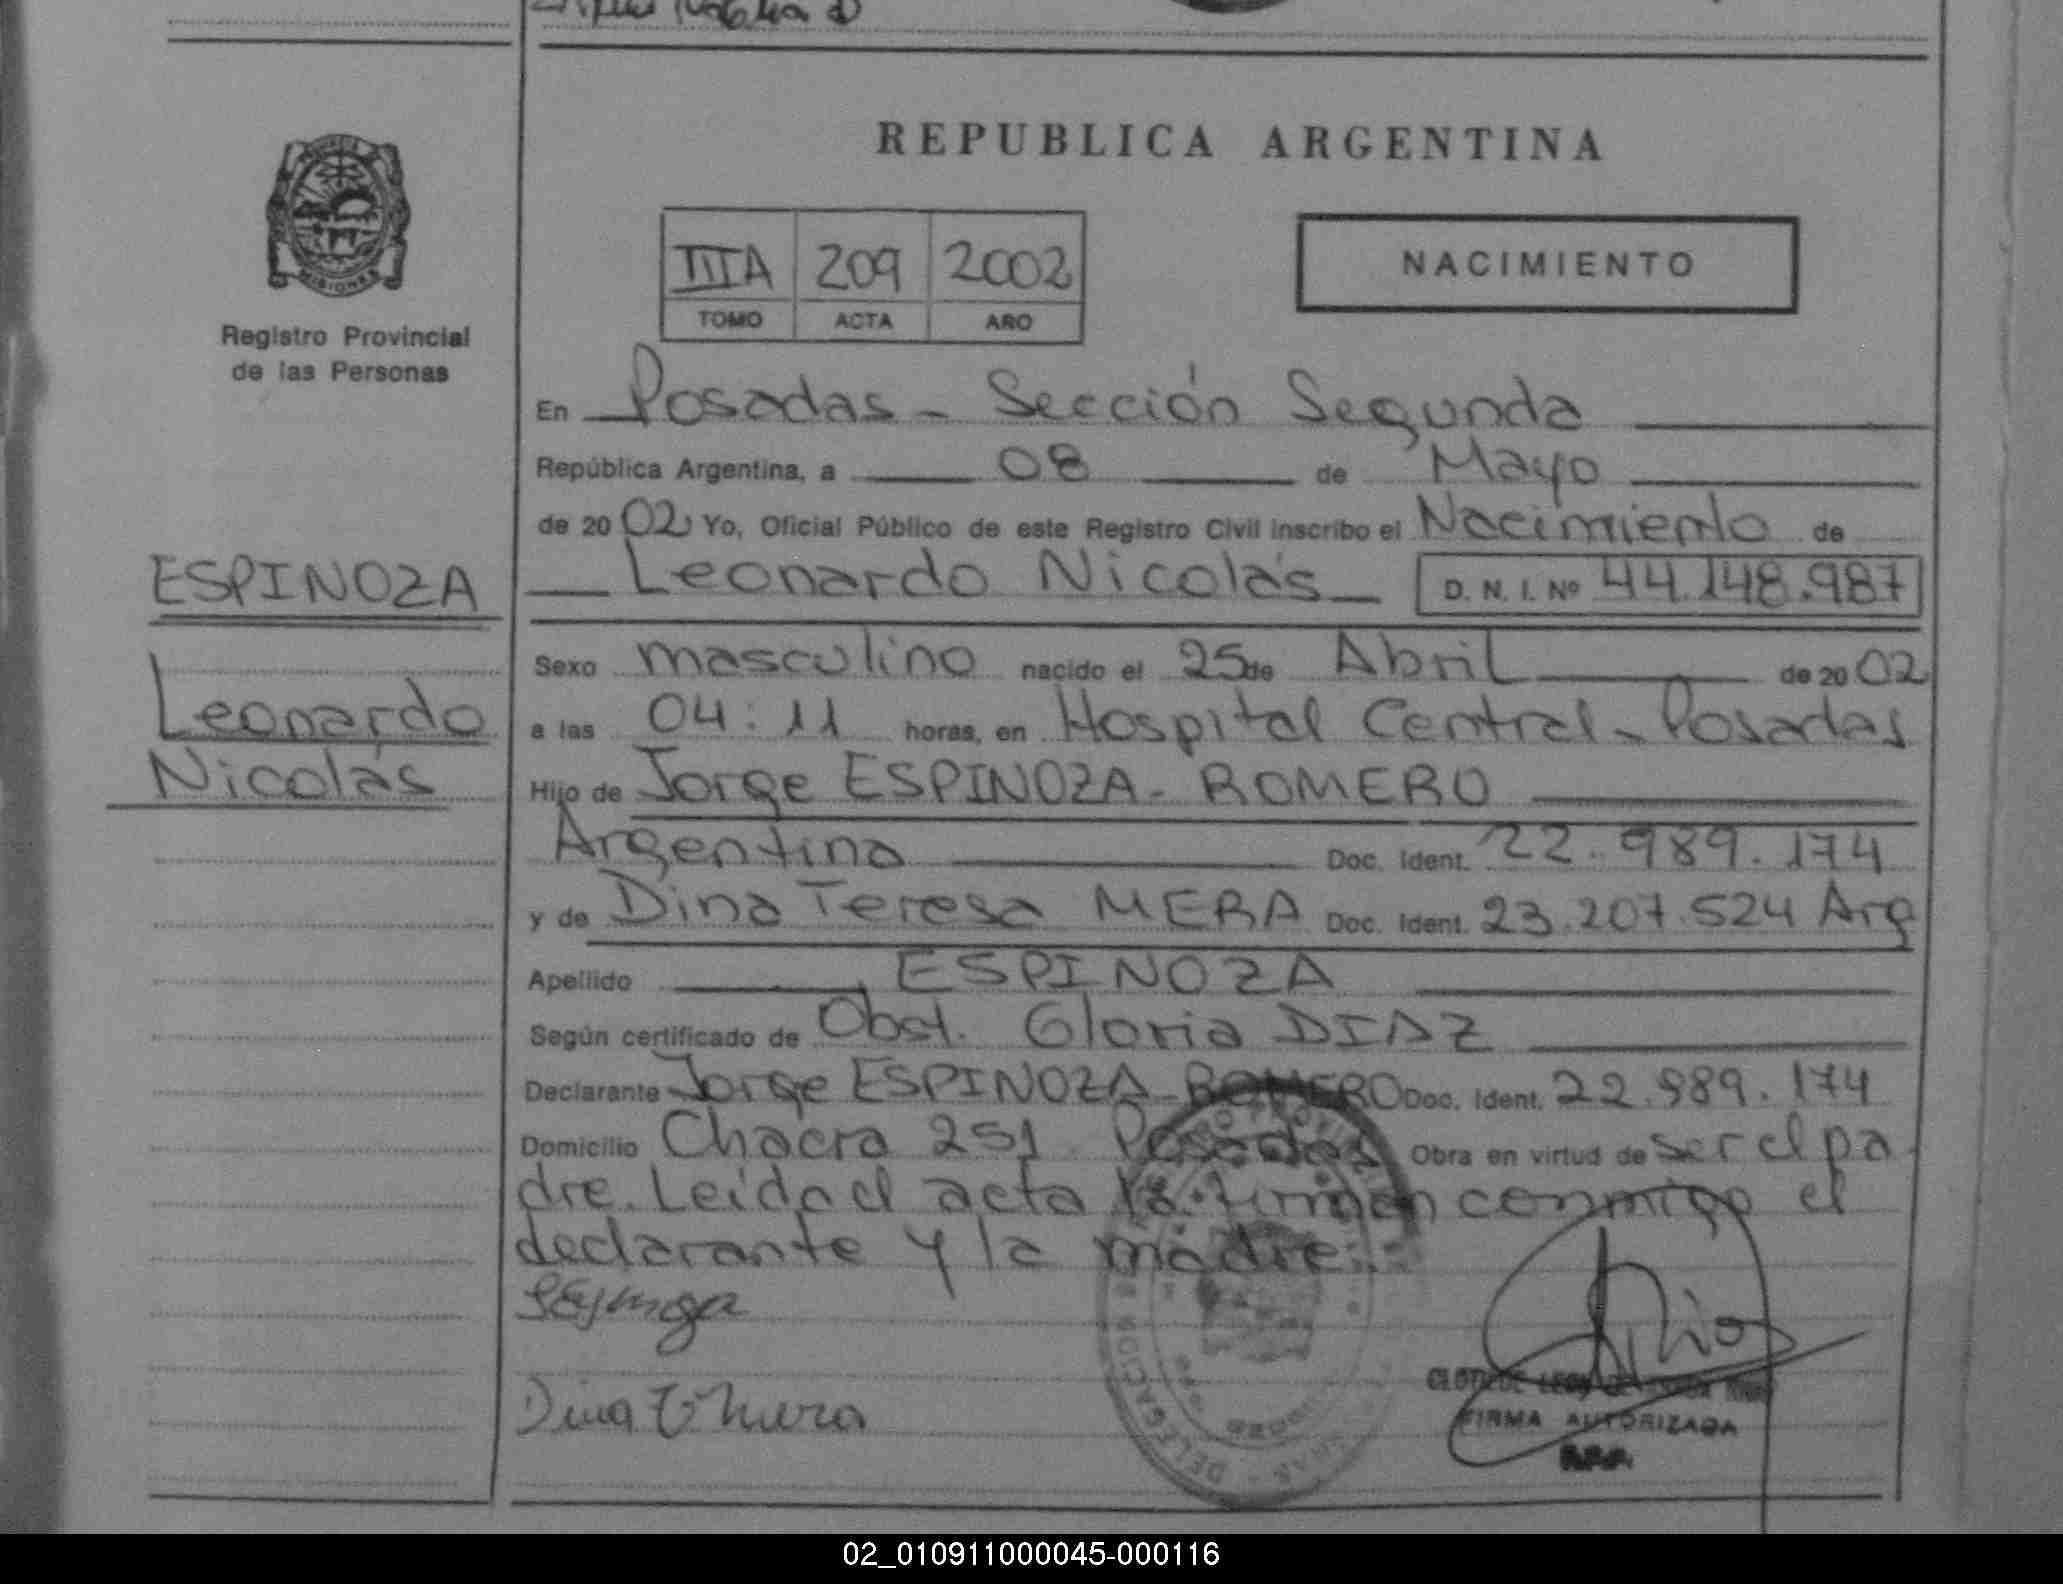 REPUBLICA ARGENTINA
MISIONES
Registro Provincial
de las Personas
IIIA 209 2002
TOMO ACTA AÑO
NACIMIENTO
En Posadas - Sección Segunda
República Argentina, a 08 de Mayo
de 2002 Yo, Oficial Público de este Registro Civil inscribo el Nacimiento de
Leonardo Nicolás D. N. I. Nº 44.148.987
ESPINOZA
Leonardo
Nicolás
Sexo masculino nacido el 25 de Abril de 2002
a las 04:11 horas, en Hospital Central - Posadas
Hijo de Jorge ESPINOZA - ROMERO
Argentino Doc. Ident. 22.989.174
y de Dina Teresa MERA Doc. Ident. 23.207.524 Arg
Apellido ESPINOZA
Según certificado de Obst. Gloria DIAZ
Declarante Jorge ESPINOZA - ROMERO Doc. Ident. 22.989.174
Domicilio Chacra 251 Posadas Obra en virtud de ser el pa
dre. Leida el acta la firman conmigo el
declarante y la madre.
Dina T Mera
DELEGACION
FIRMA AUTORIZADA
02_010911000045-000116